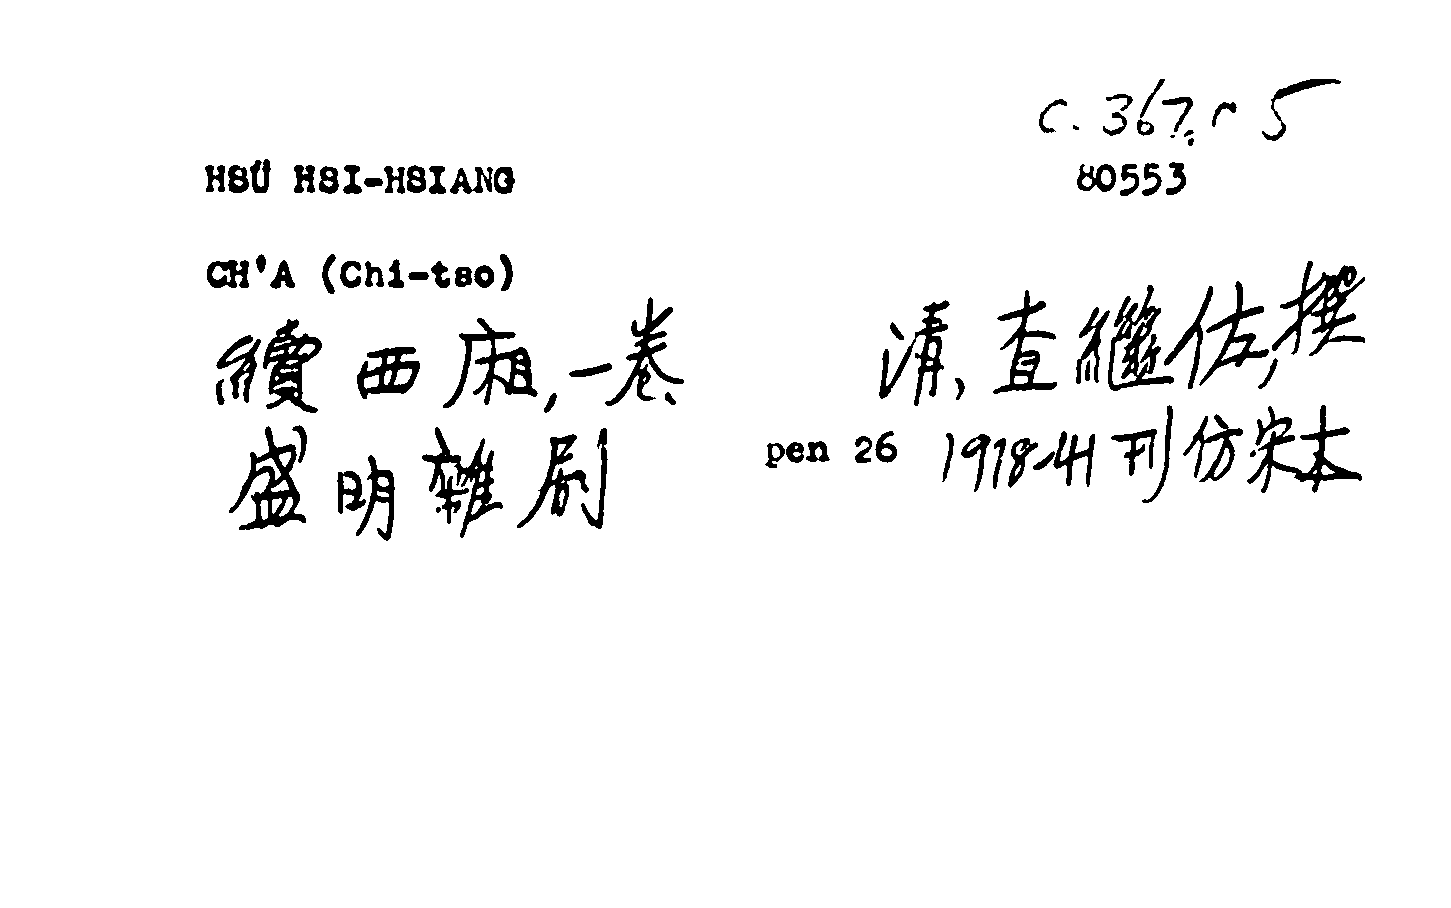 C. 367. r 5
HSÜ HSI-HSIANG 80553
CH'A (Chi-tso)
續西廂,一卷 清,查繼佐,撰
盛明雜剧 pen 26 1918-41刊仿宋本